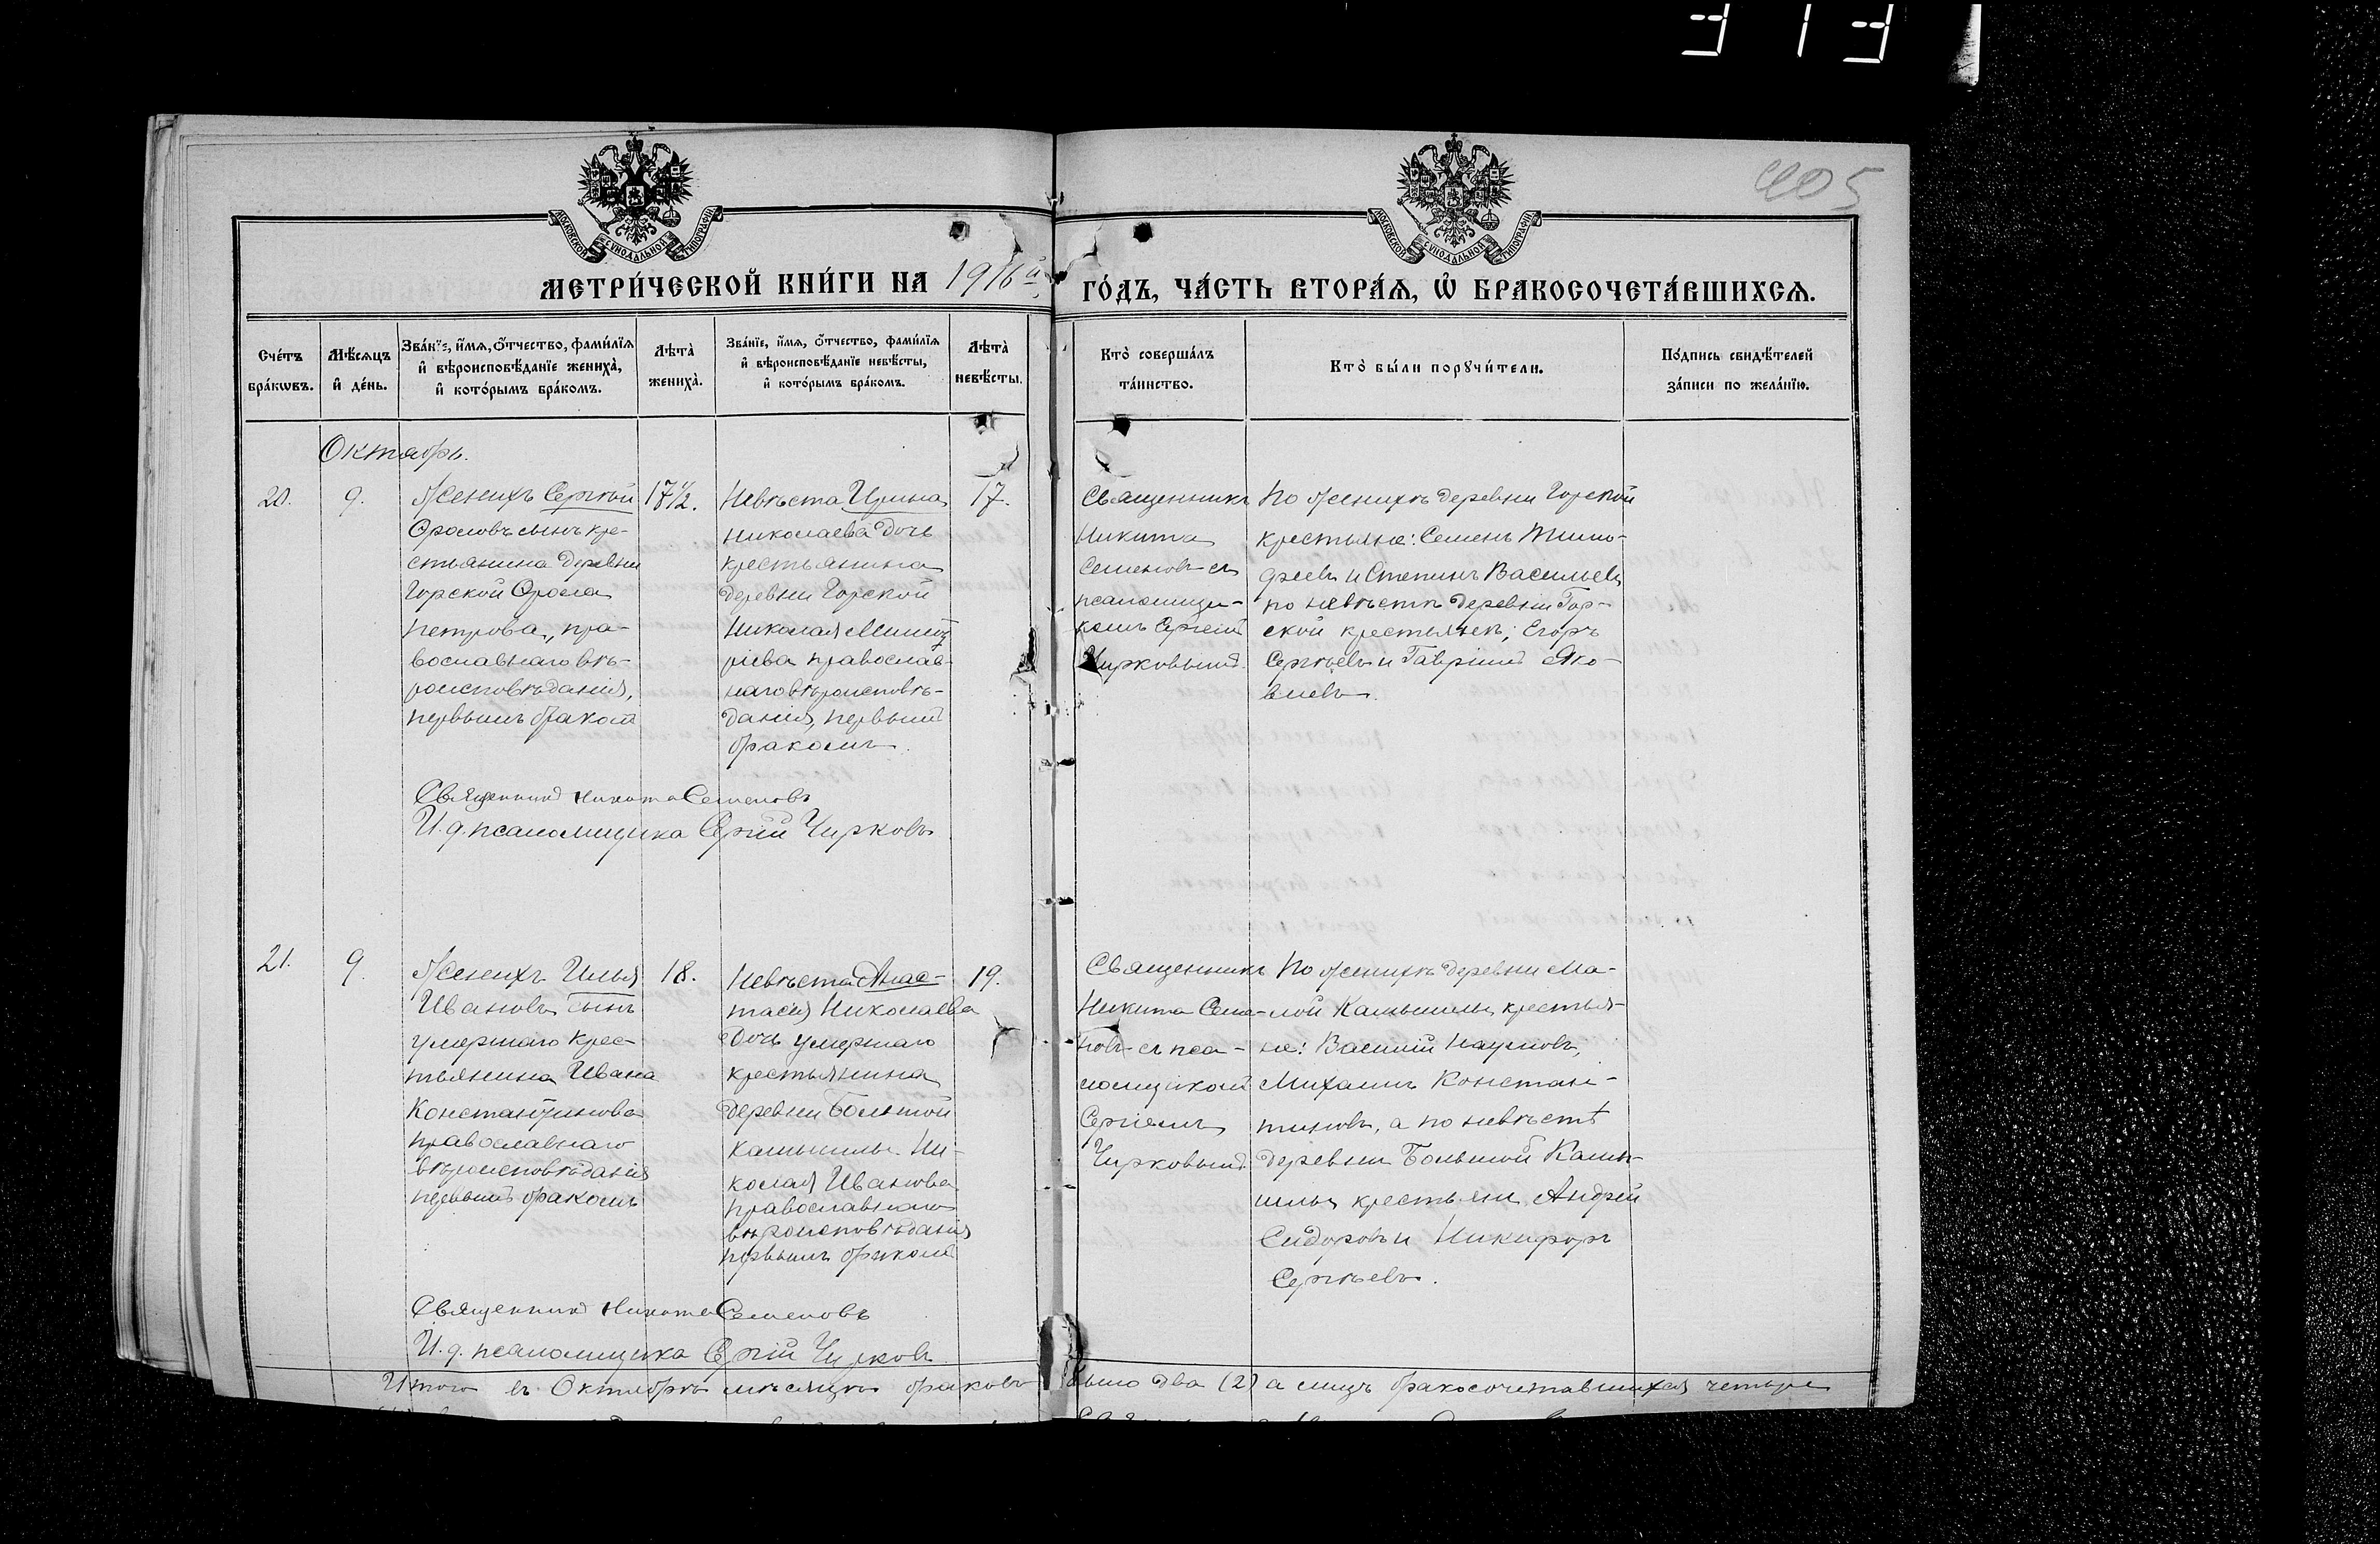 313
405
МОСКОВСКОЙ СѴНОДАЛЬНОЙ ТИПОГРАФІИ
МОСКОВСКОЙ СѴНОДАЛЬНОЙ ТИПОГРАФІИ
МЕТРИ́ЧЕСКОЙ КНИ́ГИ НА 1916й
ГО́ДЪ, ЧА́СТЬ ВТОРА́Я, Ѡ҆ БРАКОСОЧЕТА́ВШИХСЯ.
Сче́тъ
бра́кѡвъ.
Мѣ́сяцъ
и҆ де́нь.
Зва́нїе, и҆́мя, ѻ҆́тчество, фами́лїя
и҆ вѣроисповѣ́данїе жениха̀,
и҆ кото́рымъ бра́комъ.
Лѣта̀
жениха̀.
Зва́нїе, и҆́мя, ѻ҆́тчество, фами́лїя
и҆ вѣроисповѣ́данїе невѣ́сты,
и҆ кото́рымъ бра́комъ.
Лѣта̀
невѣ́сты.
Кто̀ соверша́лъ
та́инство.
Кто̀ бы́ли порꙋчи́тели.
По́дпись свидѣ́телей
за́писи по жела́нїю.
Октябрь.
20.
9.
Женихъ Сергѣй
Фроловъ сынъ кре-
стьянина деревни
Горской Фрола
Петрова, пра-
вославнаго вѣ-
роисповѣданія,
первымъ бракомъ
17½.
Невѣста Ирина
Николаева дочь
крестьянина
деревни Горской
Николая
православ-
наго вѣроисповѣ-
данія, первымъ
бракомъ.
17.
Священникъ
Никита
Семеновъ съ
псаломщи-
комъ Сергіемъ
Чирковымъ.
По женихѣ деревни Горской
крестьяне: Семенъ Тимо-
феевъ и Степанъ Васильевъ,
по невѣстѣ деревни Гор-
ской крестьяне; Егоръ
Сергѣевъ и Гавріилъ Яко-
влевъ.
Священникъ Никита Семеновъ
И. д. псаломщика Сергій Чирковъ
21.
9.
Женихъ Илья
Ивановъ сынъ
умершаго крес-
тьянина Ивана
Константинова
православнаго
вѣроисповѣданія
первымъ бракомъ
18.
Невѣста Анас-
тасія Николаева
дочь умершаго
крестьянина
деревни Большой
Камышлы Ни-
колая Иванова
православнаго
вѣроисповѣданія
первымъ бракомъ
19.
Священникъ
Никита Семе-
новъ съ пса-
ломщикомъ
Сергіемъ
Чирковымъ.
По женихѣ деревни Ма-
лой Камышлы, крестья-
не: Василій Наумовъ,
Михаилъ Констан-
тиновъ, а по невѣстѣ
деревни Большой Камы-
шлы крестьяни Андрей
Сидоровъ и Никифоръ
Сергѣевъ.
Священникъ Никита Семеновъ
И. д. псаломщика Сергій Чирковъ
Итого въ Октябрѣ мѣсяцѣ браковъ было два (2) а лицъ бракосочетавшихся четыре